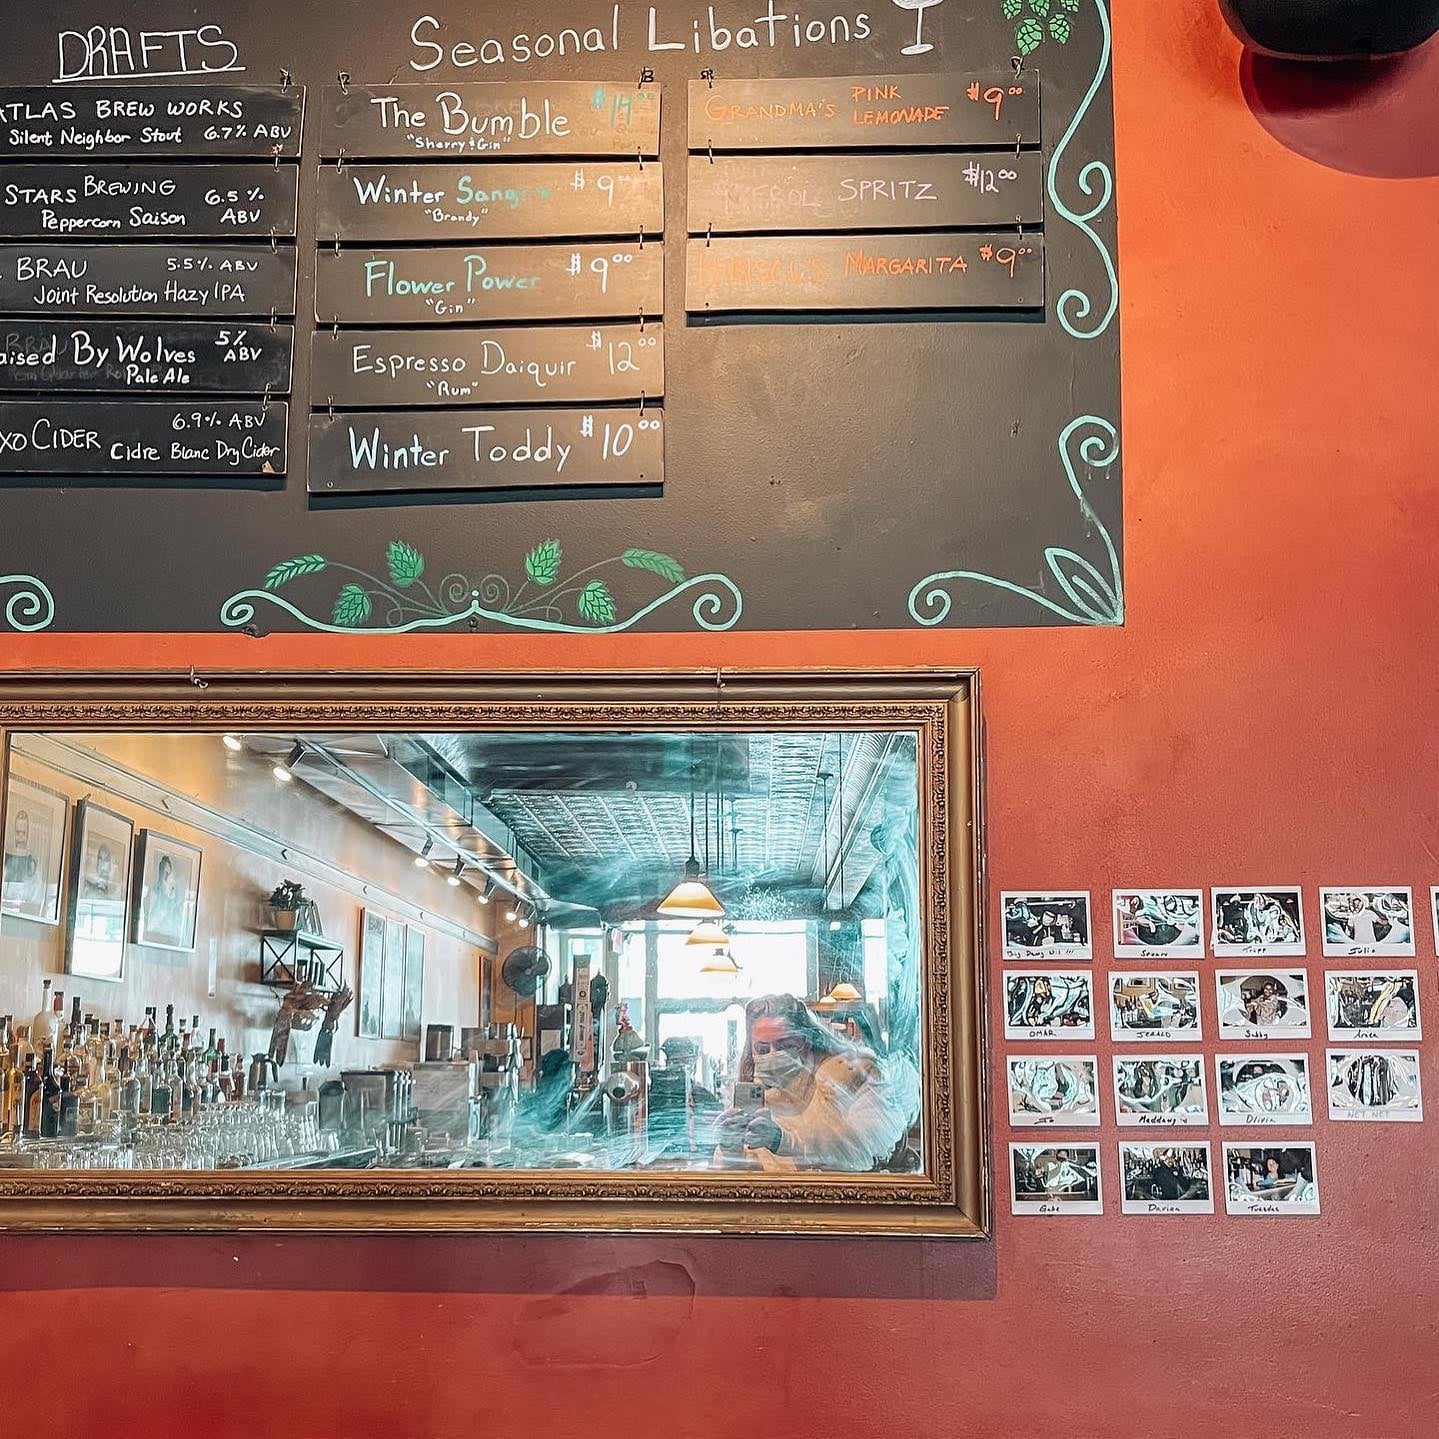 DRAFTS
ATLAS BREW WORKS
Silent Neighbor Stout 6.7% ABV
STARS BREWING 6.5%
Peppercorn Saison ABV
BRAU 5.5% ABV
Joint Resolution Hazy IPA
aised By Wolves 5%
ABV
Pale Ale
XO CIDER 6.9% ABV
Cidre Blanc Dry Cider
Seasonal Libations
The Bumble $14
"Sherry & Gin"
Winter $9
"Brandy"
Flower Power $9.00
"Gin"
Espresso Daiquir $12.00
"Rum"
Winter Toddy $10.00
GRANDMA'S PINK LEMONADE $9.00
SPRITZ $12.00
MARGARITA $9.00
Julio
OMAR
JERALD
Jo
Maddawg
Olivia
NET NET
Gabe
Tuesdae